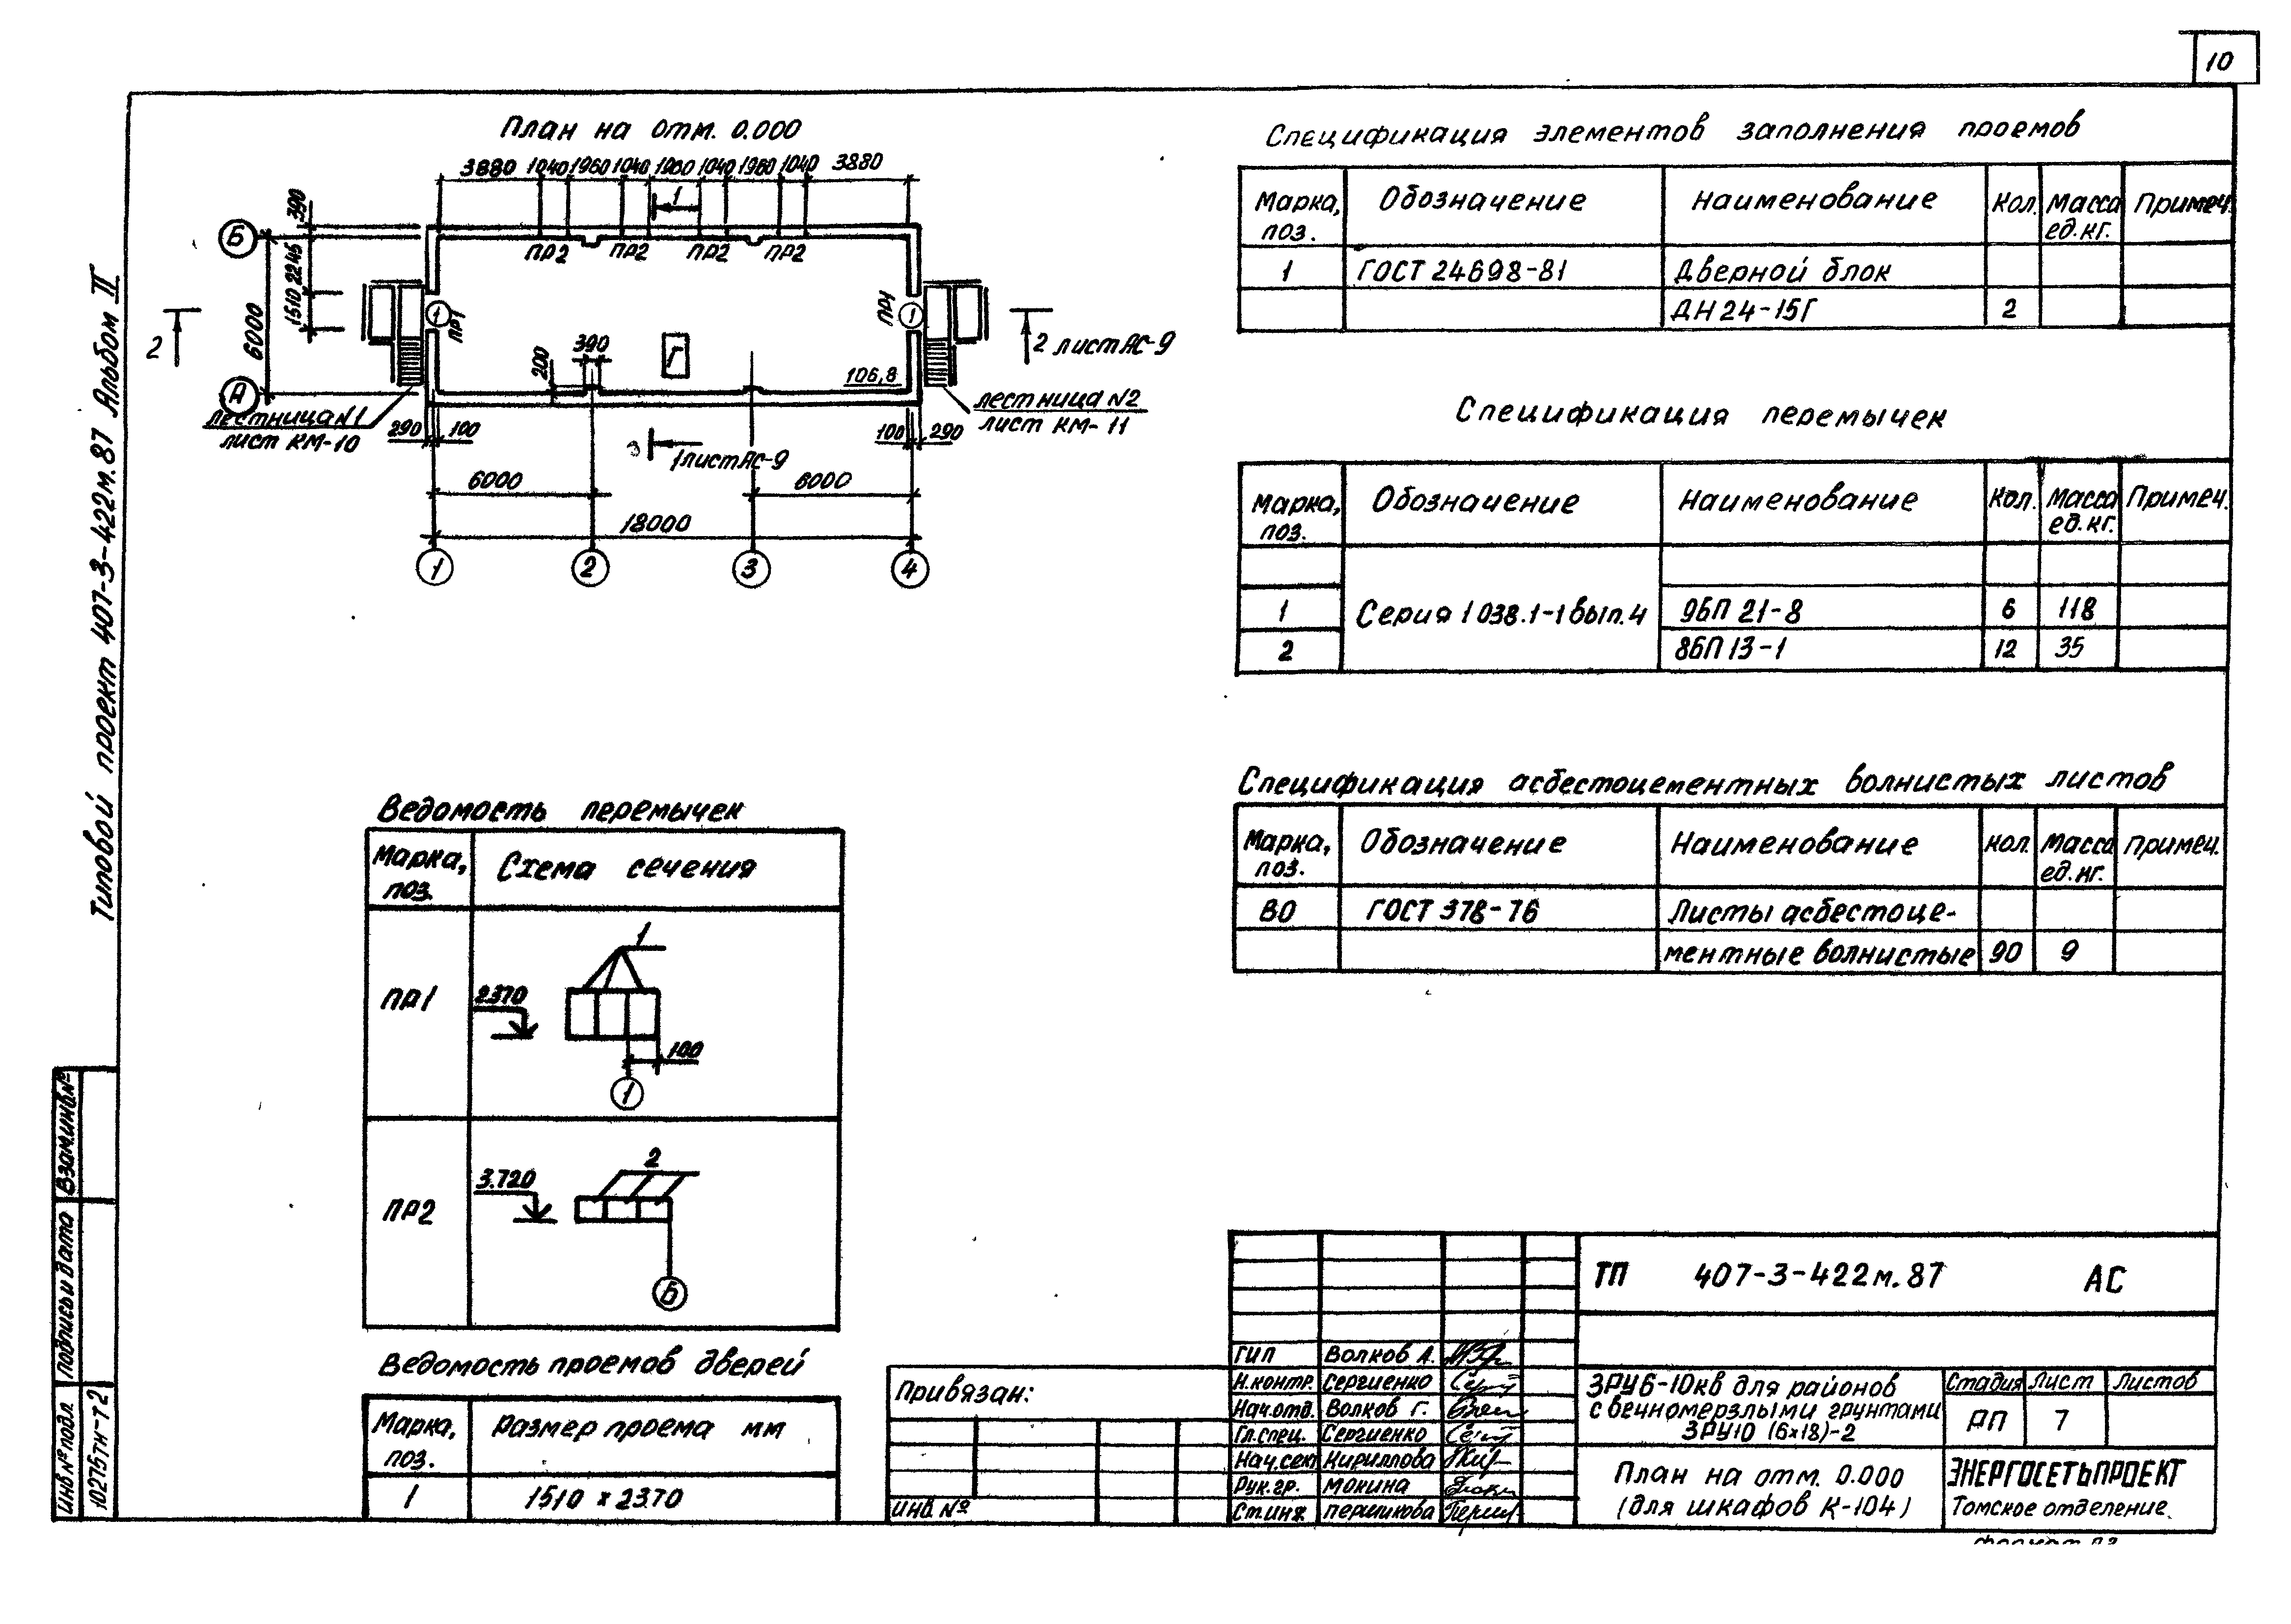 10
Типовой проект 407-3-422м.87 Альбом II
План на отм. 0.000
3880 1040 1960 1040 1960 1040 1960 1040 3880
1
390
2245
1510
6000
Б
А
ПР2 ПР2 ПР2 ПР2
1 ПР1
ПР1 1
2
2 лист АС-9
200
390
Г
106,8
лестница N1
лист КМ-10
лестница N2
лист КМ-11
290 100
100 290
3
1 лист АС-9
6000 6000
18000
1 2 3 4
Спецификация элементов заполнения проемов
Марка, поз. Обозначение Наименование Кол. Масса ед.кг. Примеч.
1 ГОСТ 24698-81 Дверной блок
ДН 24-15Г 2
Спецификация перемычек
Марка, поз. Обозначение Наименование Кол. Масса ед.кг. Примеч.
1 Серия 1 038.1-1 вып.4 9БП 21-8 6 118
2 8БП 13-1 12 35
Спецификация асбестоцементных волнистых листов
Марка, поз. Обозначение Наименование Кол. Масса ед.кг. Примеч.
ВО ГОСТ 378-76 Листы асбестоце-
ментные волнистые 90 9
Ведомость перемычек
Марка, поз. Схема сечения
ПР1
2.370
1
100
1
ПР2
3.720
2
Б
Ведомость проемов дверей
Марка, поз. Размер проема мм
1 1510 х 2370
Взам.инв.№
Подпись и дата
Инв № подл.
10275тм-т2
Привязан:
Инв. №
ТП 407-3-422м.87 АС
ГИП Волков А.
Н.контр. Сергиенко
Нач.отд. Волков Г.
Гл.спец. Сергиенко
Нач.сект Кириллова
Рук.гр. Мокина
Ст.инж. Першикова
ЗРУ 6-10кв для районов
с вечномерзлыми грунтами
ЗРУ10 (6х18)-2
Стадия Лист Листов
РП 7
План на отм. 0.000
(для шкафов К-104)
ЭНЕРГОСЕТЬПРОЕКТ
Томское отделение